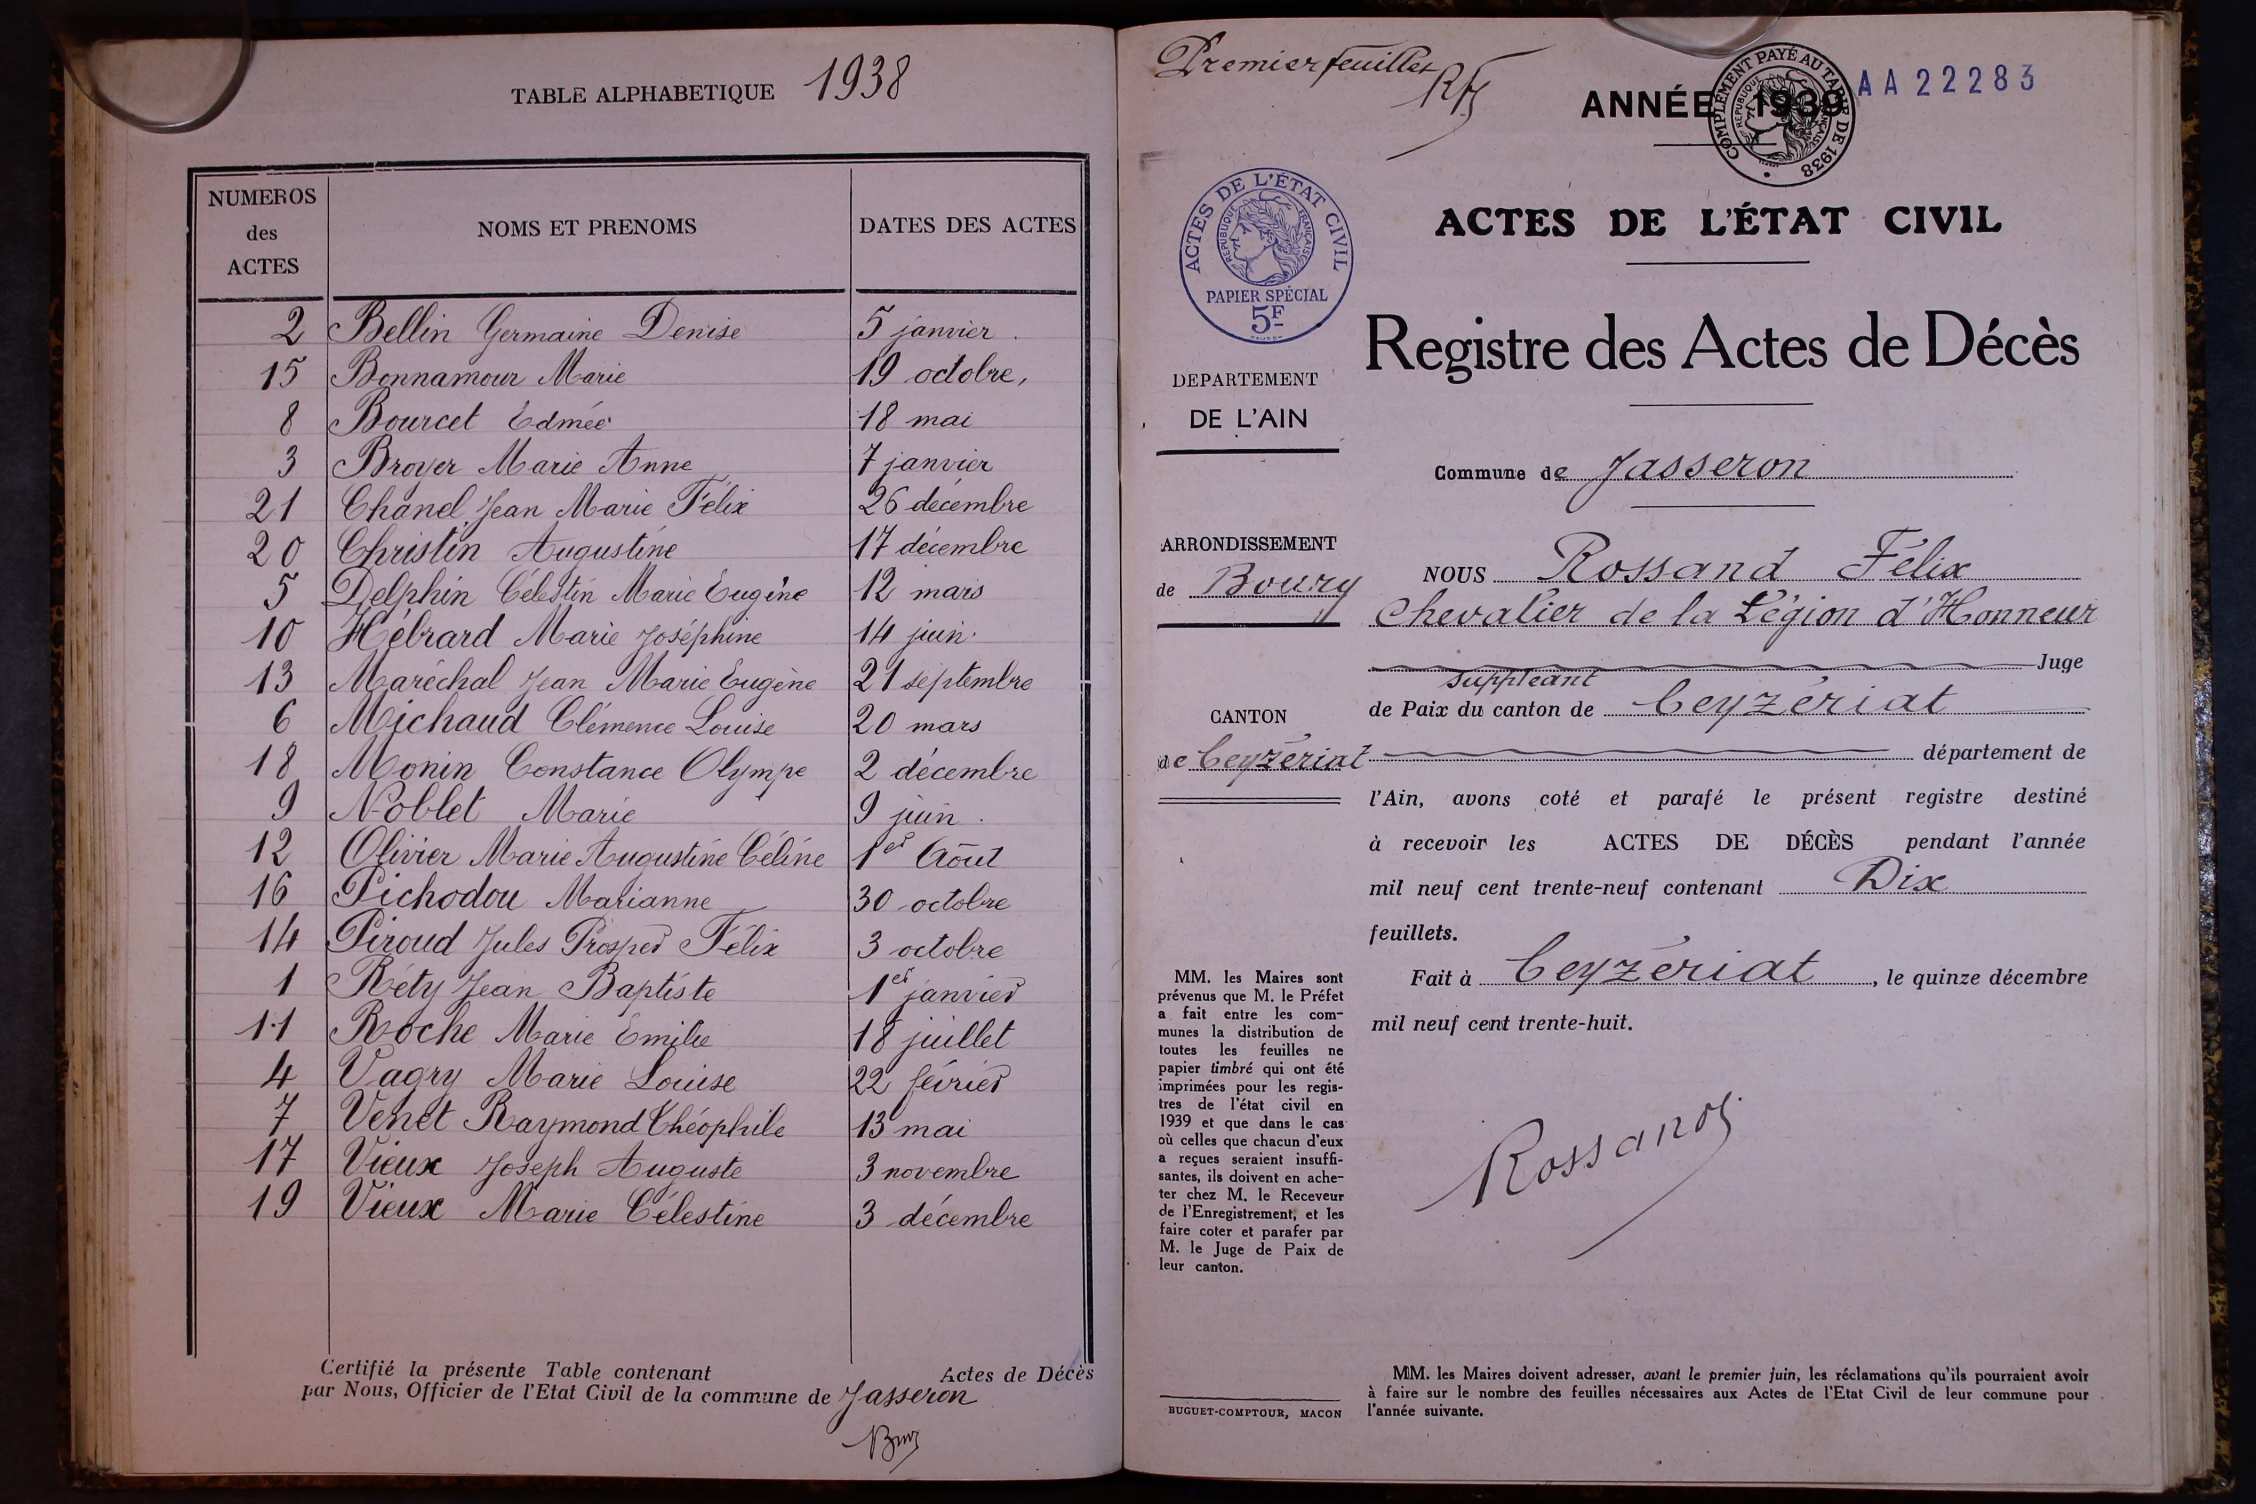 TABLE ALPHABETIQUE 1938
NUMEROS
des
ACTES
NOMS ET PRENOMS
DATES DES ACTES
2 Bellin Germaine Denise 5 janvier
15 Bonnamour Marie 19 octobre,
8 Bourcet Edmée 18 mai
3 Broyer Marie Anne 7 janvier
21 Chanel Jean Marie Félix 26 décembre
20 Christin Augustine 17 décembre
5 Delphin Célestin Marie Eugène 12 mars
10 Hébrard Marie Joséphine 14 juin
13 Maréchal Jean Marie Eugène 21 septembre
6 Michaud Clémence Louise 20 mars
18 Monin Constance Olympe 2 décembre
9 Noblet Marie 9 juin
12 Olivier Marie Augustine Céline 1er Août
16 Pichodou Marianne 30 octobre
14 Piroud Jules Prosper Félix 3 octobre
1 Réty Jean Baptiste 1er janvier
11 Roche Marie Emilie 18 juillet
4 Vagry Marie Louise 22 février
7 Venet Raymond Théophile 13 mai
17 Vieux Joseph Auguste 3 novembre
19 Vieux Marie Célestine 3 décembre
Certifié la présente Table contenant Actes de Décès
par Nous, Officier de l'Etat Civil de la commune de Jasseron
Premier feuillet
ANNÉE 1939
COMPLÉMENT PAYÉ AU TARIF DE 1938
RÉPUBLIQUE FRANÇAISE
AA22283
ACTES DE L'ÉTAT CIVIL
RÉPUBLIQUE FRANÇAISE
PAPIER SPÉCIAL
5F
ACTES DE L'ÉTAT CIVIL
Registre des Actes de Décès
DEPARTEMENT
DE L'AIN
Commune de Jasseron
ARRONDISSEMENT
de Bourg
CANTON
de Ceyzériat
NOUS Rossand Félix
Chevalier de la Légion d'Honneur
Juge
suppléant
de Paix du canton de Ceyzériat
département de
l'Ain, avons coté et parafé le présent registre destiné
à recevoir les ACTES DE DÉCÈS pendant l'année
mil neuf cent trente-neuf contenant Dix
feuillets.
Fait à Ceyzériat, le quinze décembre
mil neuf cent trente-huit.
Rossand
MM. les Maires sont
prévenus que M. le Préfet
a fait entre les com-
munes la distribution de
toutes les feuilles ne
papier timbré qui ont été
imprimées pour les regis-
tres de l'état civil en
1939 et que dans le cas
où celles que chacun d'eux
a reçues seraient insuffi-
santes, ils doivent en ache-
ter chez M. le Receveur
de l'Enregistrement, et les
faire coter et parafer par
M. le Juge de Paix de
leur canton.
BUGUET-COMPTOUR, MACON
MM. les Maires doivent adresser, avant le premier juin, les réclamations qu'ils pourraient avoir
à faire sur le nombre des feuilles nécessaires aux Actes de l'Etat Civil de leur commune pour
l'année suivante.